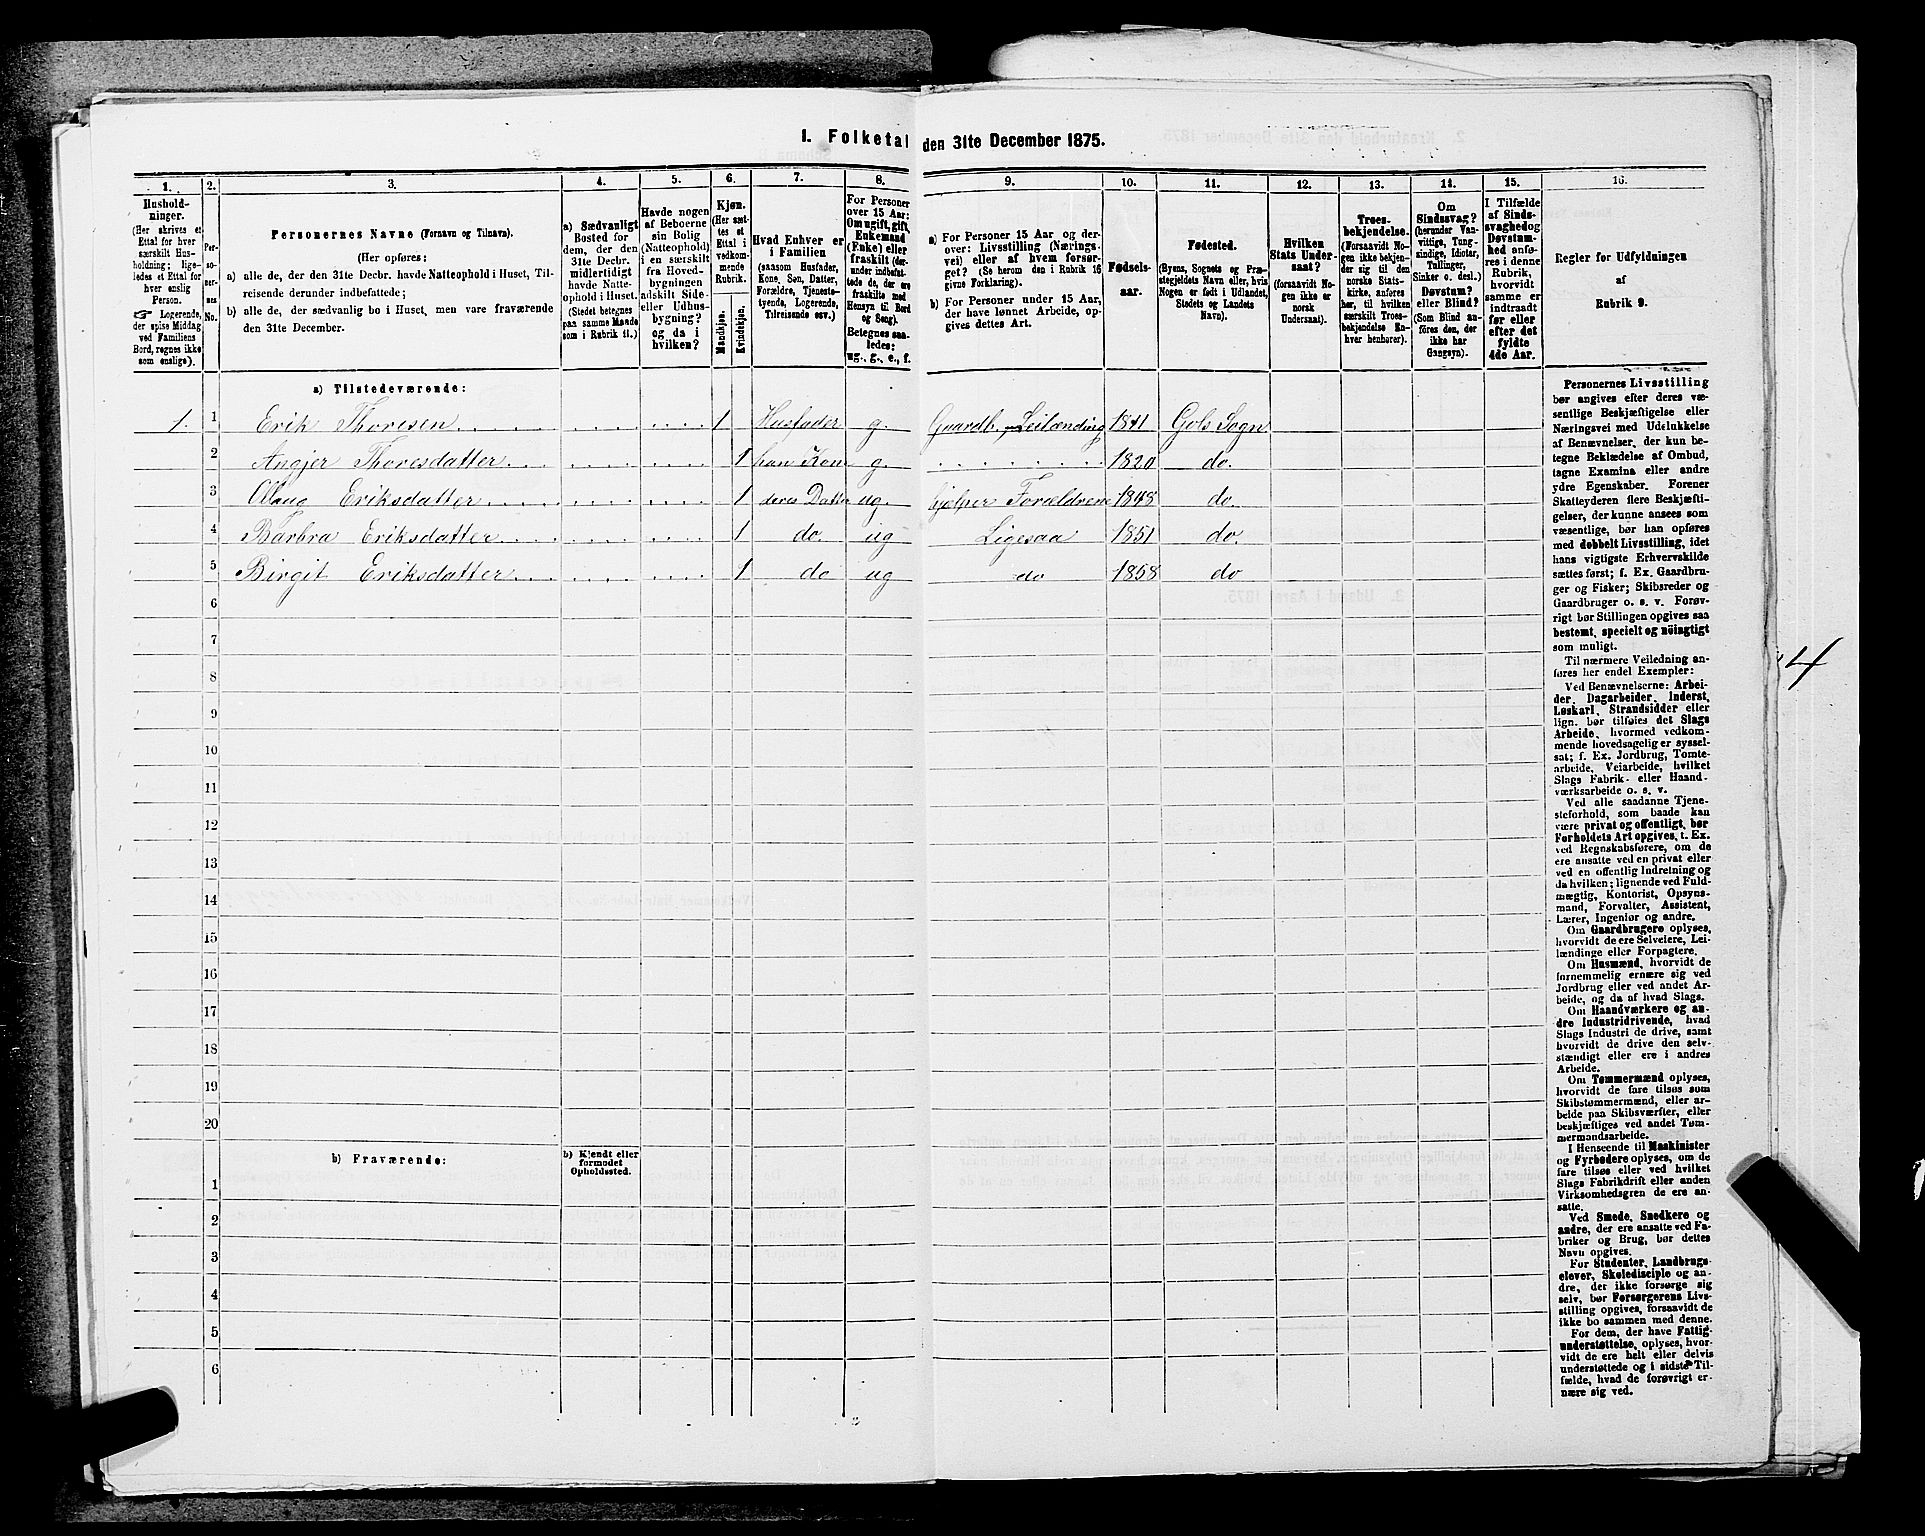 I. Folketal den 31te December 1875.
1. 2. 3. 4. 5. 6. 7. 8. 9. 10. 11. 12. 13. 14. 15. 16.
Hushold-
ninger.
(Her skrives et
Ettal for hver
særskilt Hus-
holdning; lige-
ledes et Ettal for
hver enslig
Person.
☞ Logerende,
der spise Middag
ved Familiens
Bord, regnes ikke
som enslige).
Per-
so-
ner-
nes
No.
Personernes Navne (Fornavn og Tilnavn).
(Her opføres:
a) alle de, der den 31te Decbr. havde Natteophold i Huset, Til-
reisende derunder indbefattede;
b) alle de, der sædvanlig bo i Huset, men vare fraværende
den 31te December.
a) Sædvanligt
Bosted for
dem, der den
31te Decbr.
midlertidigt
havde Natte-
ophold i Huset.
(Stedet betegnes
paa samme Maade
som i Rubrik 11.)
Havde nogen
af Beboerne
sin Bolig
(Natteophold)
i en særskilt
fra Hoved-
bygningen
adskilt Side-
eller Udhus-
bygning?
og da i
hvilken?
Kjøn.
(Her sæt-
tes et
Ettal i
vedkom-
mende
Rubrik.
Mandkjøn.
Kvindekjøn.
Hvad Enhver er
i Familien
(saasom Husfader,
Kone, Søn, Datter,
Forældre, Tjeneste-
tyende, Logerende,
Tilreisende osv.)
For Personer
over 15 Aar:
Om ugift, gift,
Enkemand
(Enke) eller
fraskilt (der-
under indbefat-
tede de, der ere
fraskilte med
Hensyn til Bord
og Seng).
Betegnes saa-
ledes:
ug., g., e., f.
a) For Personer 15 Aar og der-
over: Livsstilling (Nærings-
vei) eller af hvem forsør-
get? (Se herom den i Rubrik 16
givne Forklaring).
b) For Personer under 15 Aar,
der have lønnet Arbeide, op-
gives dettes Art.
Fødsels-
aar.
Fødested.
(Byens, Sognets og Præ-
stegjeldets Navn eller, hvis
Nogen er født i Udlandet,
Stedets og Landets
Navn).
Hvilken
Stats Under-
saat?
(forsaavidt No-
gen ikke er
norsk
Undersaat).
Troes-
bekjendelse.
(Forsaavidt No-
gen ikke bekjen-
der sig til den
norske Stats-
kirke, anføres
her, til hvilken
særskilt Troes-
bekjendelse En-
hver henhører).
Om
Sindssvag?
(herunder Van-
vittige, Tung-
sindige, Idioter,
Tullinger,
Sinker o. desl.)
Døvstum?
eller Blind?
(Som Blind an-
føres den, der
ikke har
Gangsyn).
I Tilfælde
af Sinds-
svaghed og
Døvstum-
hed anfø-
res i denne
Rubrik,
hvorvidt
samme er
indtraadt
før eller
efter det
fyldte
4de Aar.
Regler for Udfyldningen
af
Rubrik 9.
a) Tilstedeværende:
1. 1 Erik Thoresen 1 Husfader g. Gaardb. Leilænding 1841 Gols Sogn
2 Angjer Thoresdatter 1 hans Kone g. 1820 do.
3 Eriksdatter 1 deres Datter ug. hjelper Forældrene 1848 do.
4 Barbra Eriksdatter 1 do. ug Ligesaa 1851 do.
5 Birgit Eriksdatter 1 do ug do 1858 do
6
7
8
9
10
11
12
13
14
15
16
17
18
19
20
b) Fraværende:
b) Kjendt eller
formodet
Opholdssted.
1
2
3
4
5
6
Personernes Livsstilling
bør angives efter deres væ-
sentlige Beskjæftigelse eller
Næringsvei med Udelukkelse
af Benævnelser, der kun be-
tegne Beklædelse af Ombud,
tagne Examina eller andre
ydre Egenskaber. Forener
Skatteyderen flere Beskjæfti-
gelser, der kunne ansees som
væsentlige, bør han opføres
med dobbelt Livsstilling, idet
hans vigtigste Erhvervskilde
sættes først; f. Ex. Gaardbru-
ger og Fisker; Skibsreder og
Gaardbruger o. s. v. Forøv-
rigt bør Stillingen opgives saa
bestemt, specielt og nöiagtigt
som muligt.
Til nærmere Veiledning an-
føres her endel Exempler:
Ved Benævnelserne: Arbei-
der, Dagarbeider, Inderst,
Løskarl, Strandsidder eller
lign. bør tilføies det Slags
Arbeide, hvormed vedkom-
mende hovedsagelig er syssel-
sat; f. Ex. Jordbrug, Tomte-
arbeide, Veiarbeide, hvilket
Slags Fabrik- eller Haand-
værksarbeide o. s. v.
Ved alle saadanne Tjene-
steforhold, som baade kan
være privat og offentligt, bør
Forholdets Art opgives, t. Ex.
ved Regnskabsførere, om de
ere ansatte ved en privat eller
ved en offentlig Indretning og
da hvilken; lignende ved Fuld-
mægtig, Kontorist, Opsyns-
mand, Forvalter, Assistent,
Lærer, Ingeniør og andre.
Om Gaardbrugere oplyses,
hvorvidt de ere Selveiere, Lei-
lændinge eller Forpagtere.
Om Husmænd, hvorvidt de
fornemmelig ernære sig ved
Jordbrug eller ved andet Ar-
beide, og da af hvad Slags.
Om Haandværkere og an-
dre Industridrivende, hvad
Slags Industri de drive, samt
hvorvidt de drive den selv-
stændigt eller ere i andres
Arbeide.
Om Tømmermænd oplyses,
hvorvidt de fare tilsøs som
Skibstømmermænd, eller ar-
beide paa Skibsværfter, eller
beskjæftiges ved andet Tøm-
mermandsarbeide.
I Henseende til Maskinister
og Fyrbødere oplyses, om de
fare tilsøs eller ved hvilket
Slags Fabrikdrift eller anden
Virksomhedsgren de ere an-
satte.
Ved Smede, Snedkere og
andre, der ere ansatte ved Fa-
briker og Brug, bør dettes
Navn opgives.
For Studenter, Landbrugs-
elever, Skoledisciple og an-
dre, der ikke forsørge sig
selv, bør Forsørgerens Livs-
stilling opgives, forsaavidt de
ikke bo sammen med denne.
For dem, der have Fattig-
understøttelse, oplyses, hvor-
vidt de ere helt eller delvis
understøttede og i sidste Til-
fælde, hvad de forøvrigt er-
nære sig ved.
4